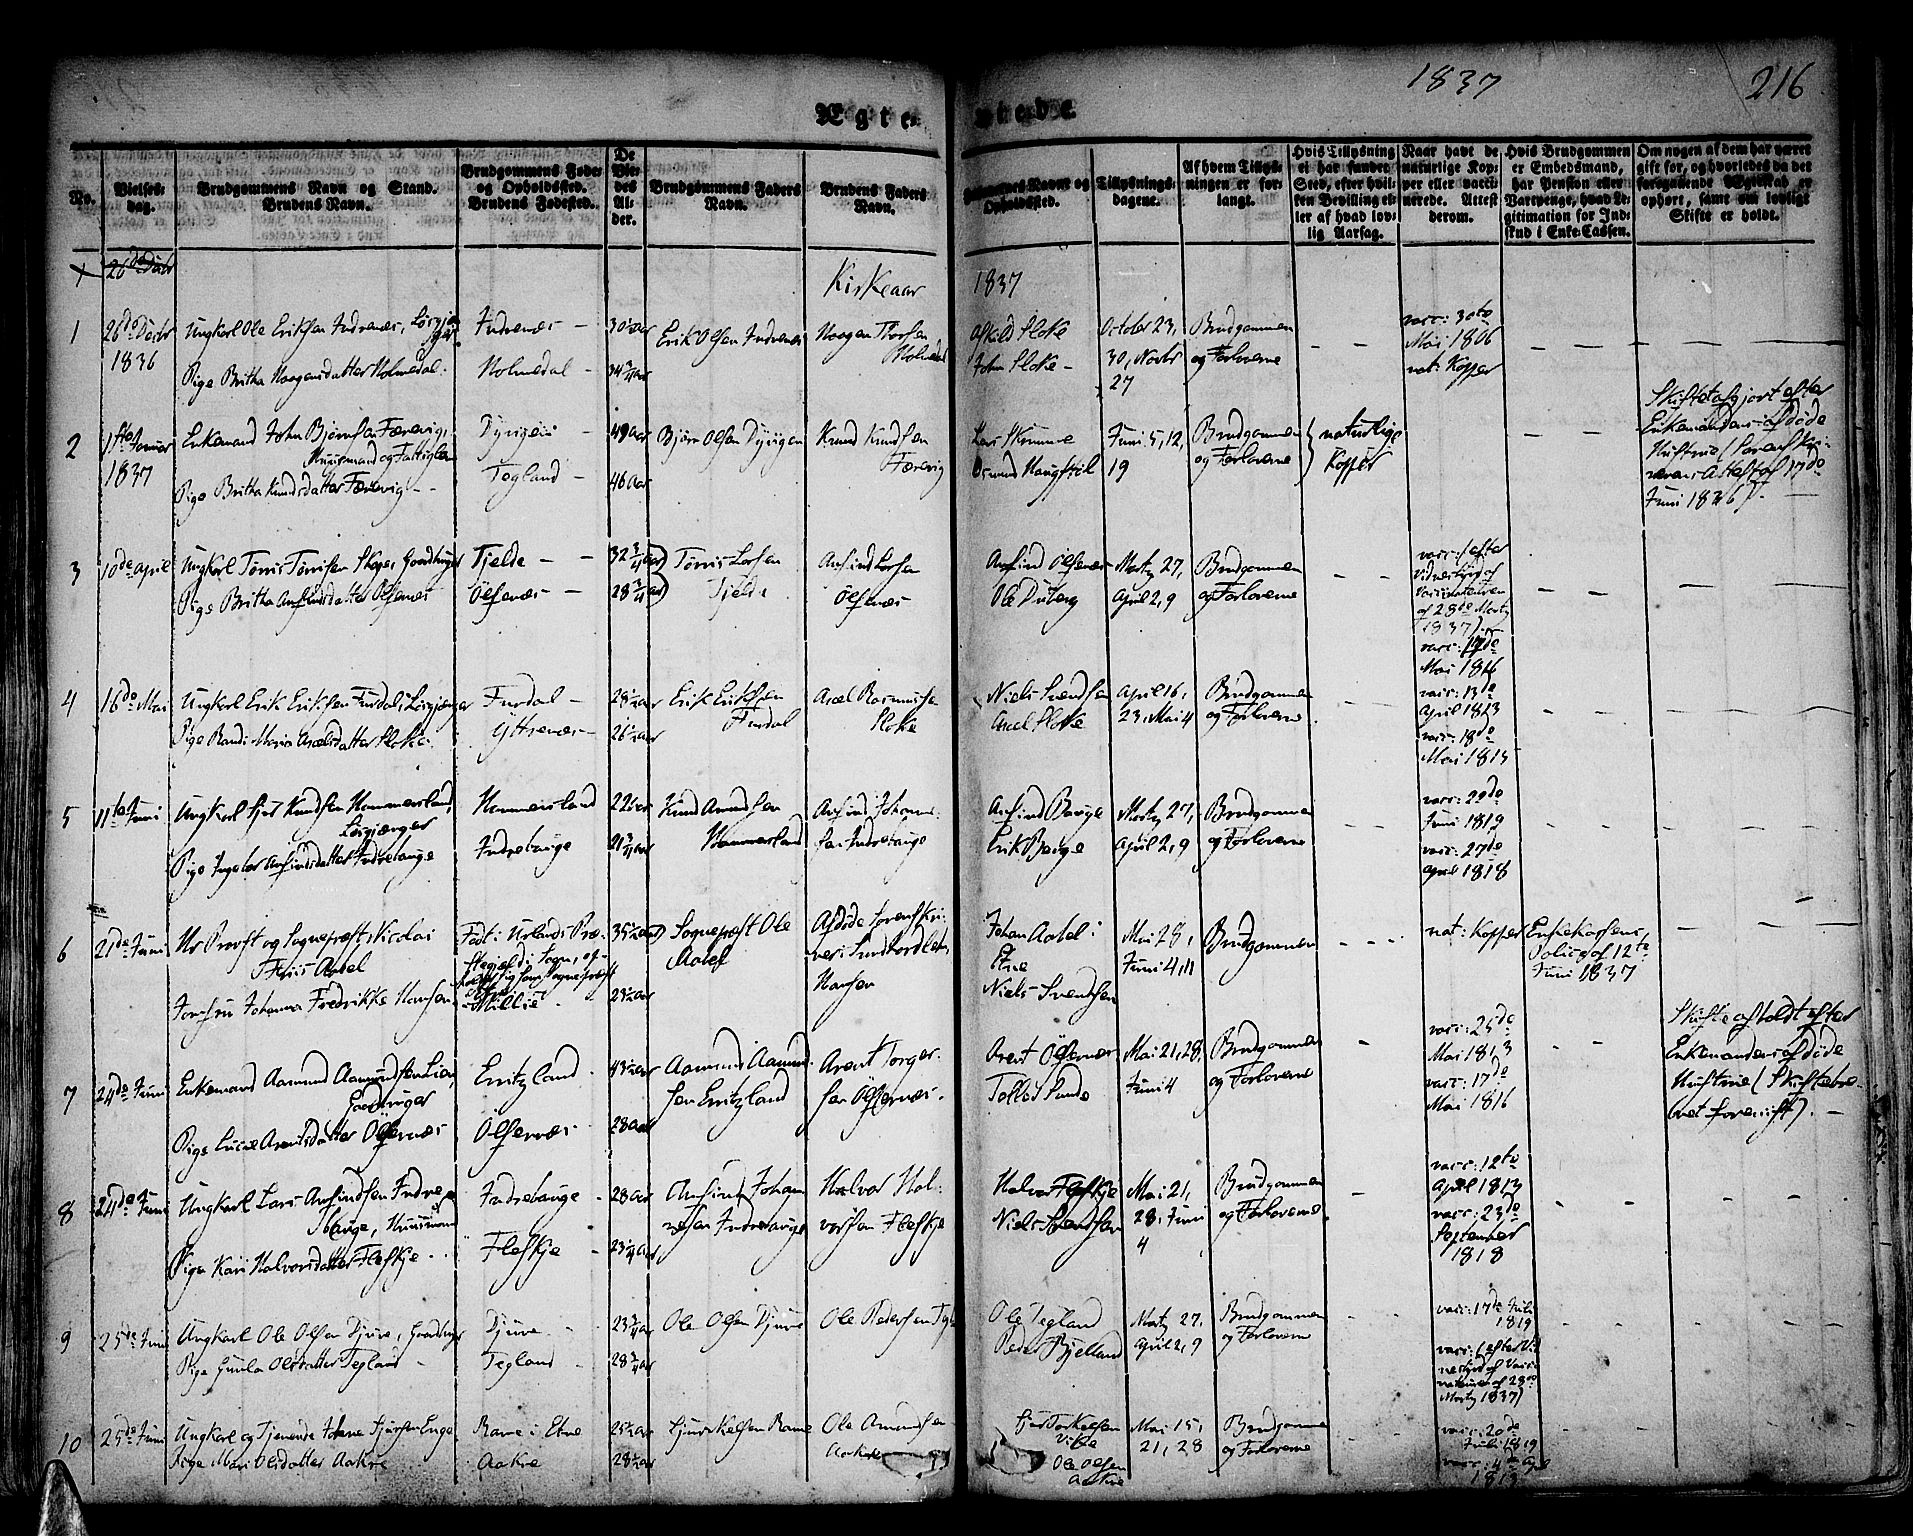 1837
216
Ægte
viede.
No.
Vielses-
dag.
Brudgommens Navn og Stand.
Brudens Navn.
Brudgommens Føde-
og Opholdssted.
Brudens Fødested.
De
Vie-
des
Al-
der.
Brudgommens Faders
Navn.
Brudens Faders
Navn.
Forlovernes Navne og
Opholdssted.
Tillysnings-
dagene.
Af hvem Tillys-
ningen er for-
langt.
Hvis Tillysning
ei har fundet
Sted, efter hvil-
ken Bevilling el-
ler af hvad lov-
lig Aarsag.
Naar havt de
naturlige Kop-
per eller vacci-
nerede. Attest
derom.
Hvis Brudgommen
er Embedsmand,
har Pension eller
Vartpenge, hvad Le-
gitimation for Ind-
skud i Enke-Cassen.
Om nogen af dem har været
gift før, og hvorledes da det
foregaaende Ægteskab er
ophørt, samt om lovligt
Skifte er holdt.
Kirkeaar
1837
1
26de Decbr
1836
Ungkarl Ole Eriksen Indrenæs,
Pige Britha Haagensdatter Holmedal.
Indrenæs
Holmedal
30 aar
34 aar
Erik Olsen Indrenæs
Haagen Thorsen
Holmedal
Askild Sloke
John Sloke
October 23,
30, Novbr
27
Brudgommen
og Forloverne
vacc: 30te
Mai 1806
nat: Kopper
2
1ste Januar
1837
Enkemand John Bjørnsen Færevig,
Huusmand og Fattiglem
Pige Britha Knudsdatter Færevig
Tegland
49 aar
46 aar
Bjørn Olsen
Knud Knudsen
Færevig
Osmund Haugstøl
Juni 5, 12,
19
Brudgommen
og Forloverne
naturlige
Kopper
Skiftet afgjort efter
Enkemandens afdøde
Hustrue (Sorenskri-
verens Attest af 17de
Juni 1836).
3
10de April
Ungkarl Tønnis Tønnisen
Pige Britha Anfindsdatter Ølfernæs
Tjelde
Ølfernæs
32 3/4 aar
28 3/4 aar
Tønnis Larsen
Tjelde
Anfind Larsen
Ølfernæs
Anfind Ølfernæs
Ole
Martz 27,
April 2, 9
Brudgommen
og Forloverne
vacc: (efter
Vidnesbyrd af
Vaccinateuren
af 28de Martz
1837).
vacc: 17de
Mai 1816
4
16de Mai
Ungkarl Erik Eriksen Furdal,
Pige Randi Maria Axelsdatter Sloke
Furdal
Yttrenæs
28 aar
26 aar
Erik Eriksen
Furdal
Axel Rasmussen
Sloke
Niels Svendsen
Axel Sloke
April 16,
23, Mai 4
Brudgommen
og Forloverne
vacc: 13de
April 1813
vacc: 18de
Mai 1815
5
11te Juni
Ungkarl Sjur Knudsen Hammersland,
Pige Ingebor Anfindsdatter Indrebauge
Hammersland
Indrebauge
22 aar
21 3/4 aar
Knud Amundsen
Hammersland
Anfind Johanne-
sen Indrebauge
Anfind Bauge
Erik Bauge
Martz 27,
April 2, 9
Brudgommen
og Forloverne
vacc: 29de
Juni 1819
vacc: 27de
April 1818
6
21de Juni
Hr Provst og Sognepræst Nicolai
Friis Aabel
Jomfru Johanna Fredrikke Hansen
Født i Urlands Præ-
stegjeld i Sogn,
35 1/2 aar
23 1/2 aar
Sognepræst Ole
Aabel
Afdøde Sorenskri-
ver i Sundhordlehn
Hansen
Johan Aabel i
Etne
Niels Svendsen
Mai 28,
Juni 4, 11
Brudgommen
nat: Kopper
Enkekassens
Police af 12te
Juni 1837
7
24de Juni
Enkemand Aamund Aamundsen Lien,
Pige Lucie Arentsdatter Ølfernæs
Eritzland
Ølfernæs
43 1/2 aar
28 aar
Aamund Aamund-
sen Eritzland
Arent Torger-
sen Ølfernæs.
Arent Ølfernæs
Tollef Sunde
Mai 21, 28,
Juni 4
Brudgommen
og Forloverne
vacc: 25de
Mai 1813
vacc: 17de
Mai 1816
Skifte afholdt efter
Enkemandens afdøde
Hustrue (Skiftebre-
vet foreviist).
8
24de Juni
Ungkarl Lars Anfindsen Indre-
bauge, Huusmand
Pige Kari Halvorsdatter Fleskje
Indrebauge
Fleskje
28 aar
23 1/4 aar
Anfind Johan-
nesen Indrebauge
Halvor Hal-
vorsen Fleskje
Halvor Fleskje
Niels Svendsen
Mai 21,
28, Juni
4
Brudgommen
og Forloverne.
vacc: 12te
April 1813
vacc: 23de
September
1818
9
25de Juni
Ungkarl Ole Olsen Djuve,
Pige Gunla Olsdatter Tegland
Djuve
Tegland
23 3/4 aar
28 3/4 aar
Ole Olsen Djuve
Ole Pedersen
Ole Tegland
Peder Bjelland
Martz 27,
April 2, 9
Brudgommen
og Forloverne
vacc: 17de Juli
1819
vacc: (efter Vid-
nesbyrd af Vacci-
nateuren af 28de
Martz 1837)
10
25de Juni
Ungkarl og Tjenende
Pige Mari Olsdatter Aakre
Rame i Etne
Aakre
25 1/2 aar
28 1/2 aar
Ole Amundsen
Aakre
Sjur Torkelsen
Vikse
Ole Olsen
Aakre
Mai 15,
21, 28
Brudgommen
og Forloverne
vacc: 20de
Juli 1819
vacc: 4de April
1813